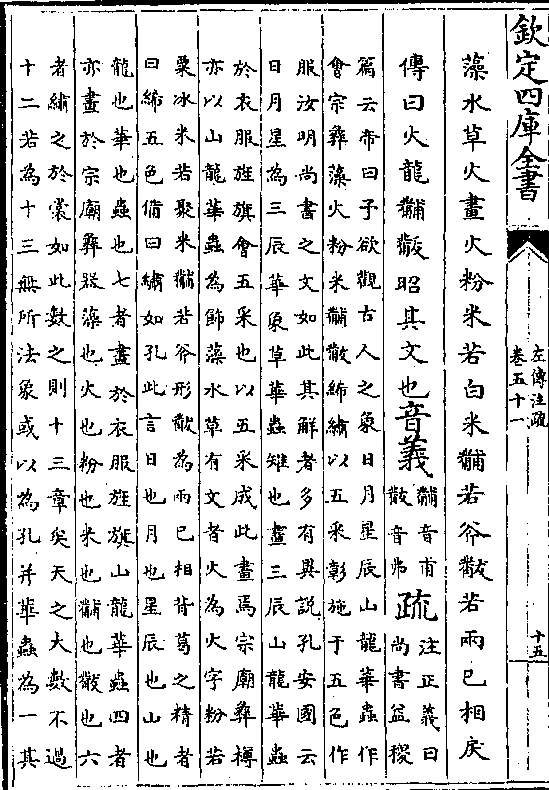 欽定四庫全書
左傳注疏
卷五十一
十五
藻水草火畫火粉米若白米黼若斧黻若兩已相戾
傳曰火龍黼黻昭其文也音義黼音甫黻音弗疏注正義曰尚書益稷
篇云帝曰予欲觀古人之象日月星辰山龍華蟲作
會宗彝藻火粉米黼黻絺繡以五采彰施于五色作
服汝明尚書之文如此其解者多有異說孔安國云
日月星為三辰華象草華蟲雉也畫三辰山龍華蟲
於衣服旌旗會五采也以五采成此畫焉宗廟彝樽
亦以山龍華蟲為飾藻水草有文者火為火字粉若
粟冰米若聚米黼若斧形黻為兩已相背葛之精者
曰絺五色備曰繡如孔此言日也月也星辰也山也
龍也華也蟲也七者畫於衣服旌旗山龍華蟲四者
亦畫於宗廟彝器藻也火也粉也米也黼也黻也六
者繡之於裳如此數之則十三章矣天之大數不過
十二若為十三無所法象或以為孔并華蟲為一其